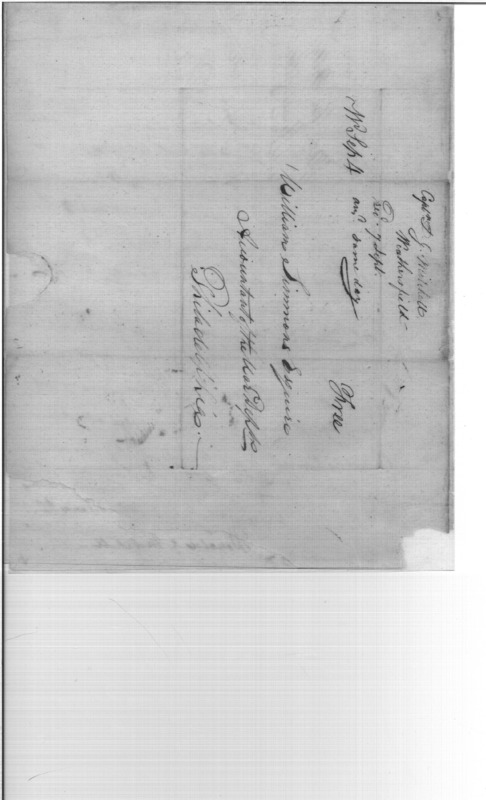 Capt. J. G. Mitchell
Wethersfield
Rec. 7 Sept.
ansd. same day
Sept 4
Free
William Simmons Esquire
Accountant to the War Dept
Philadelphia